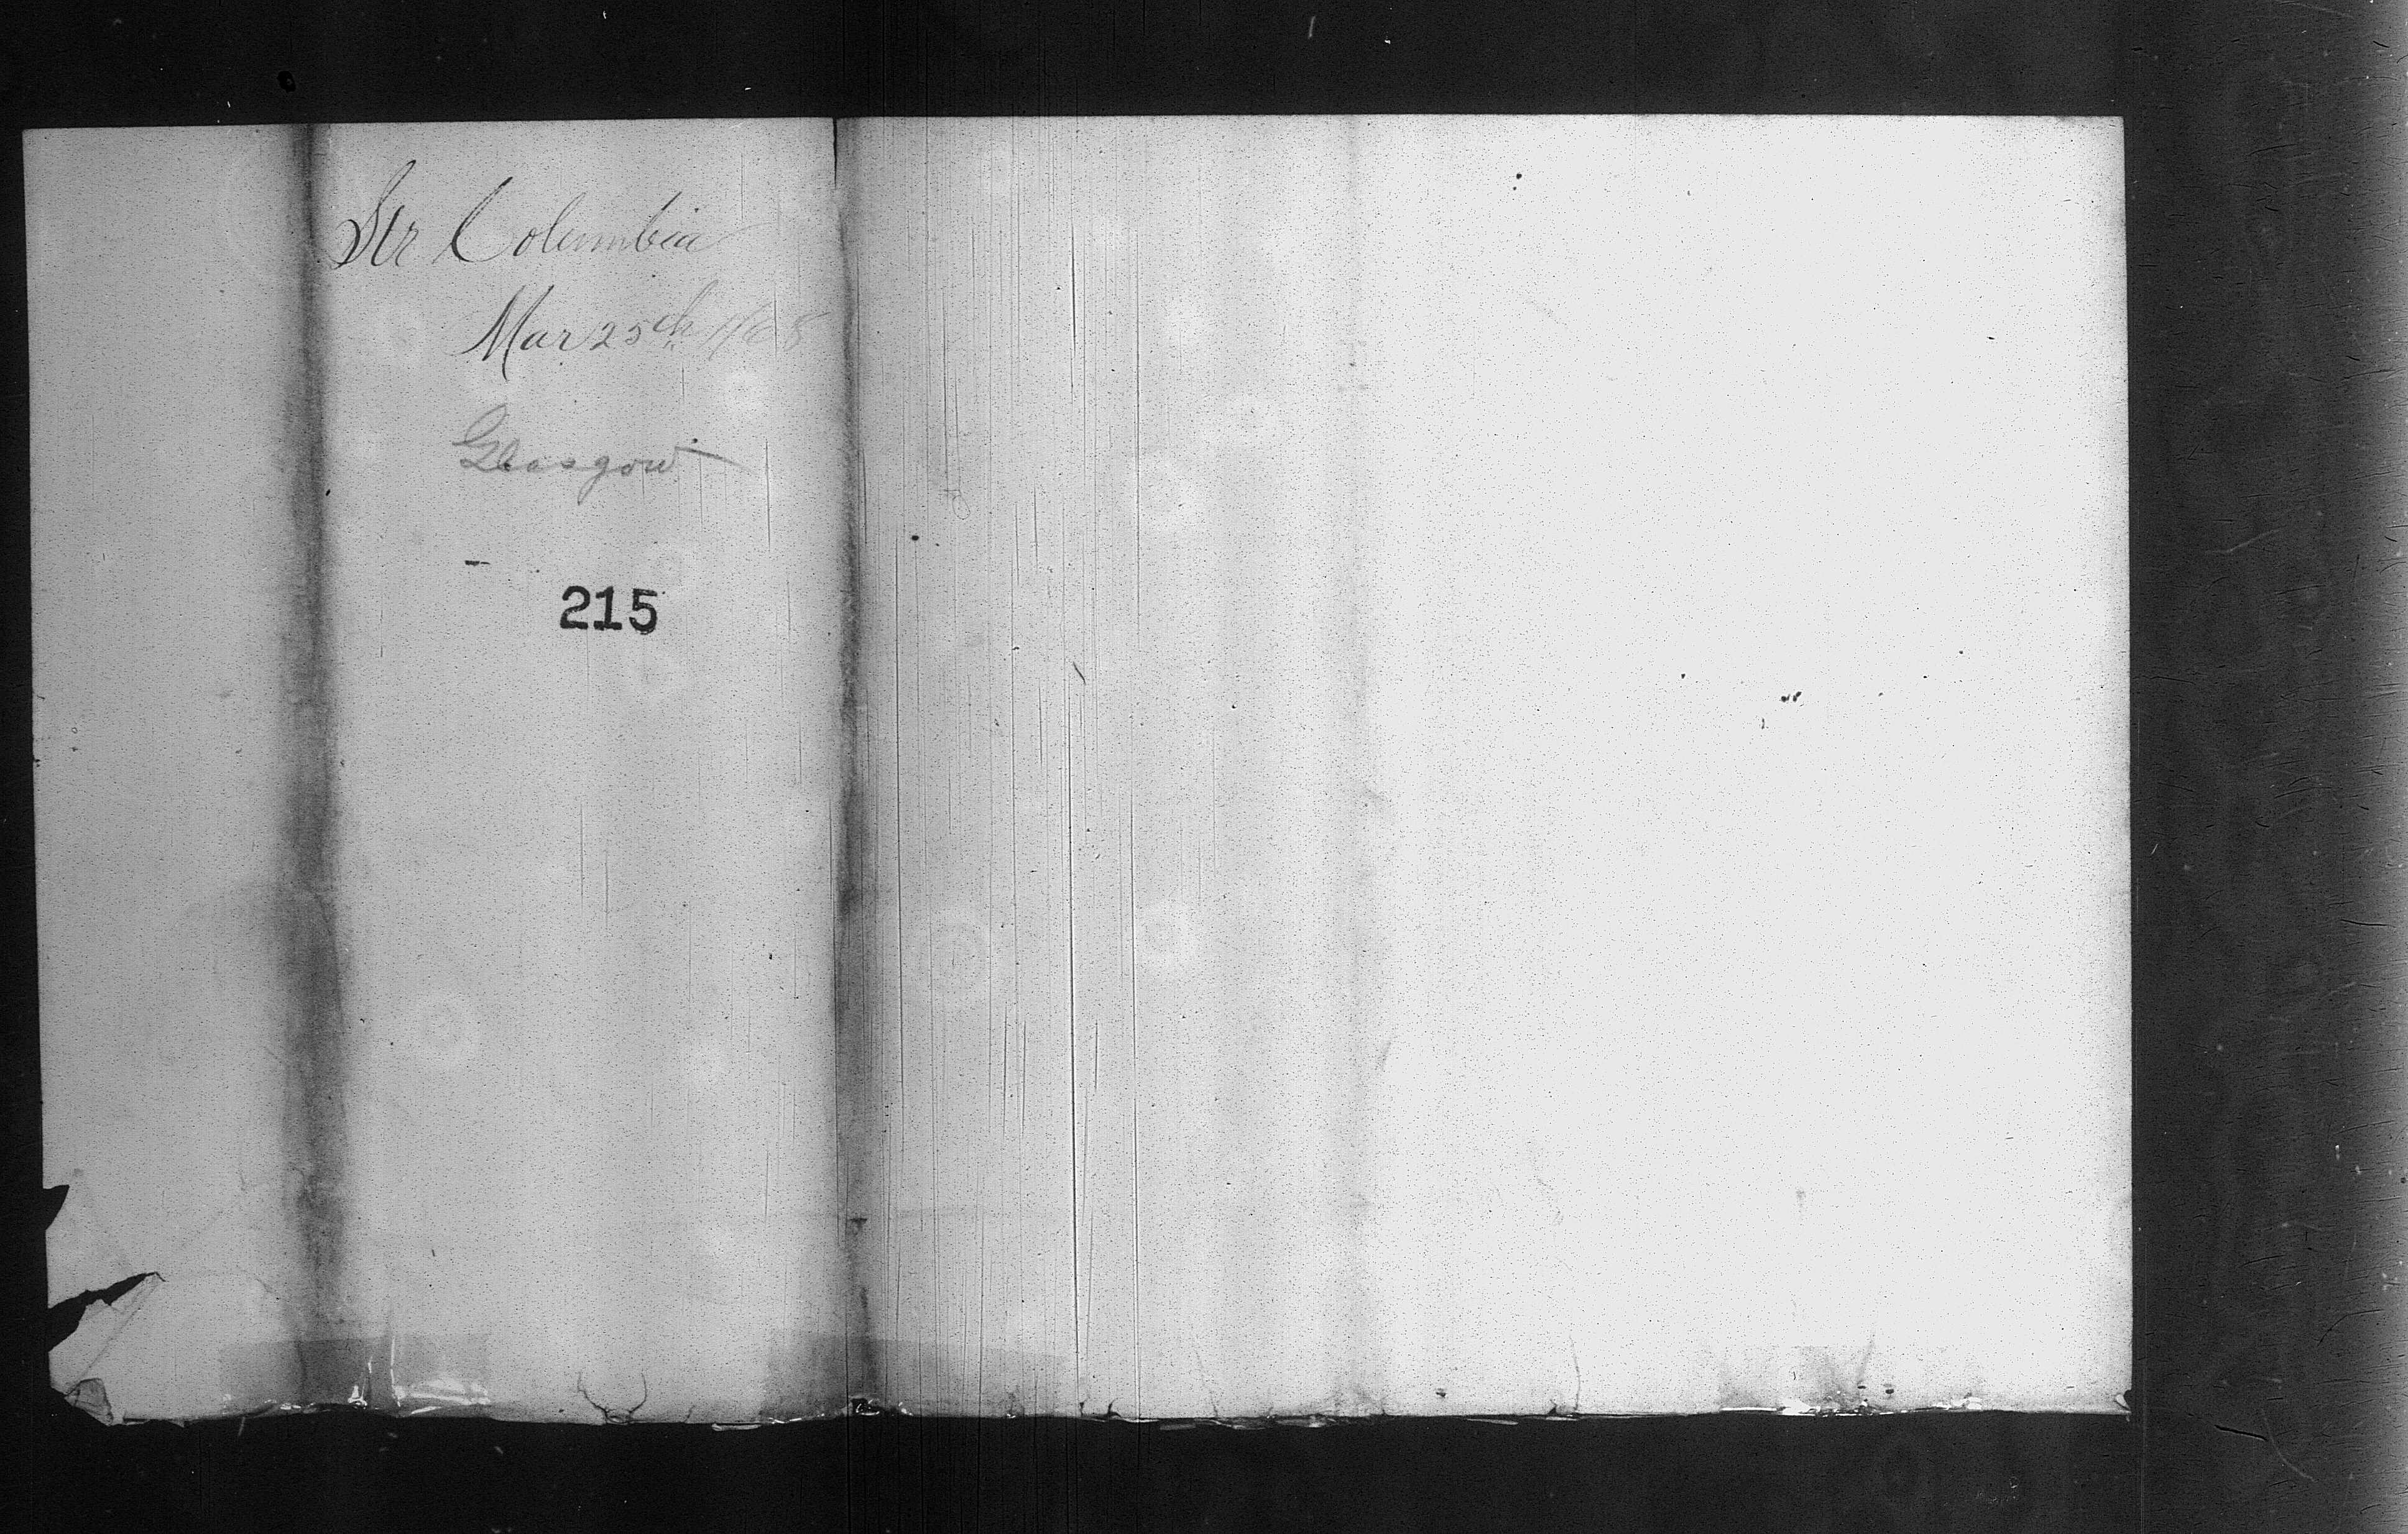 Str Columbia
Mar 25th 1868
Glasgow
215